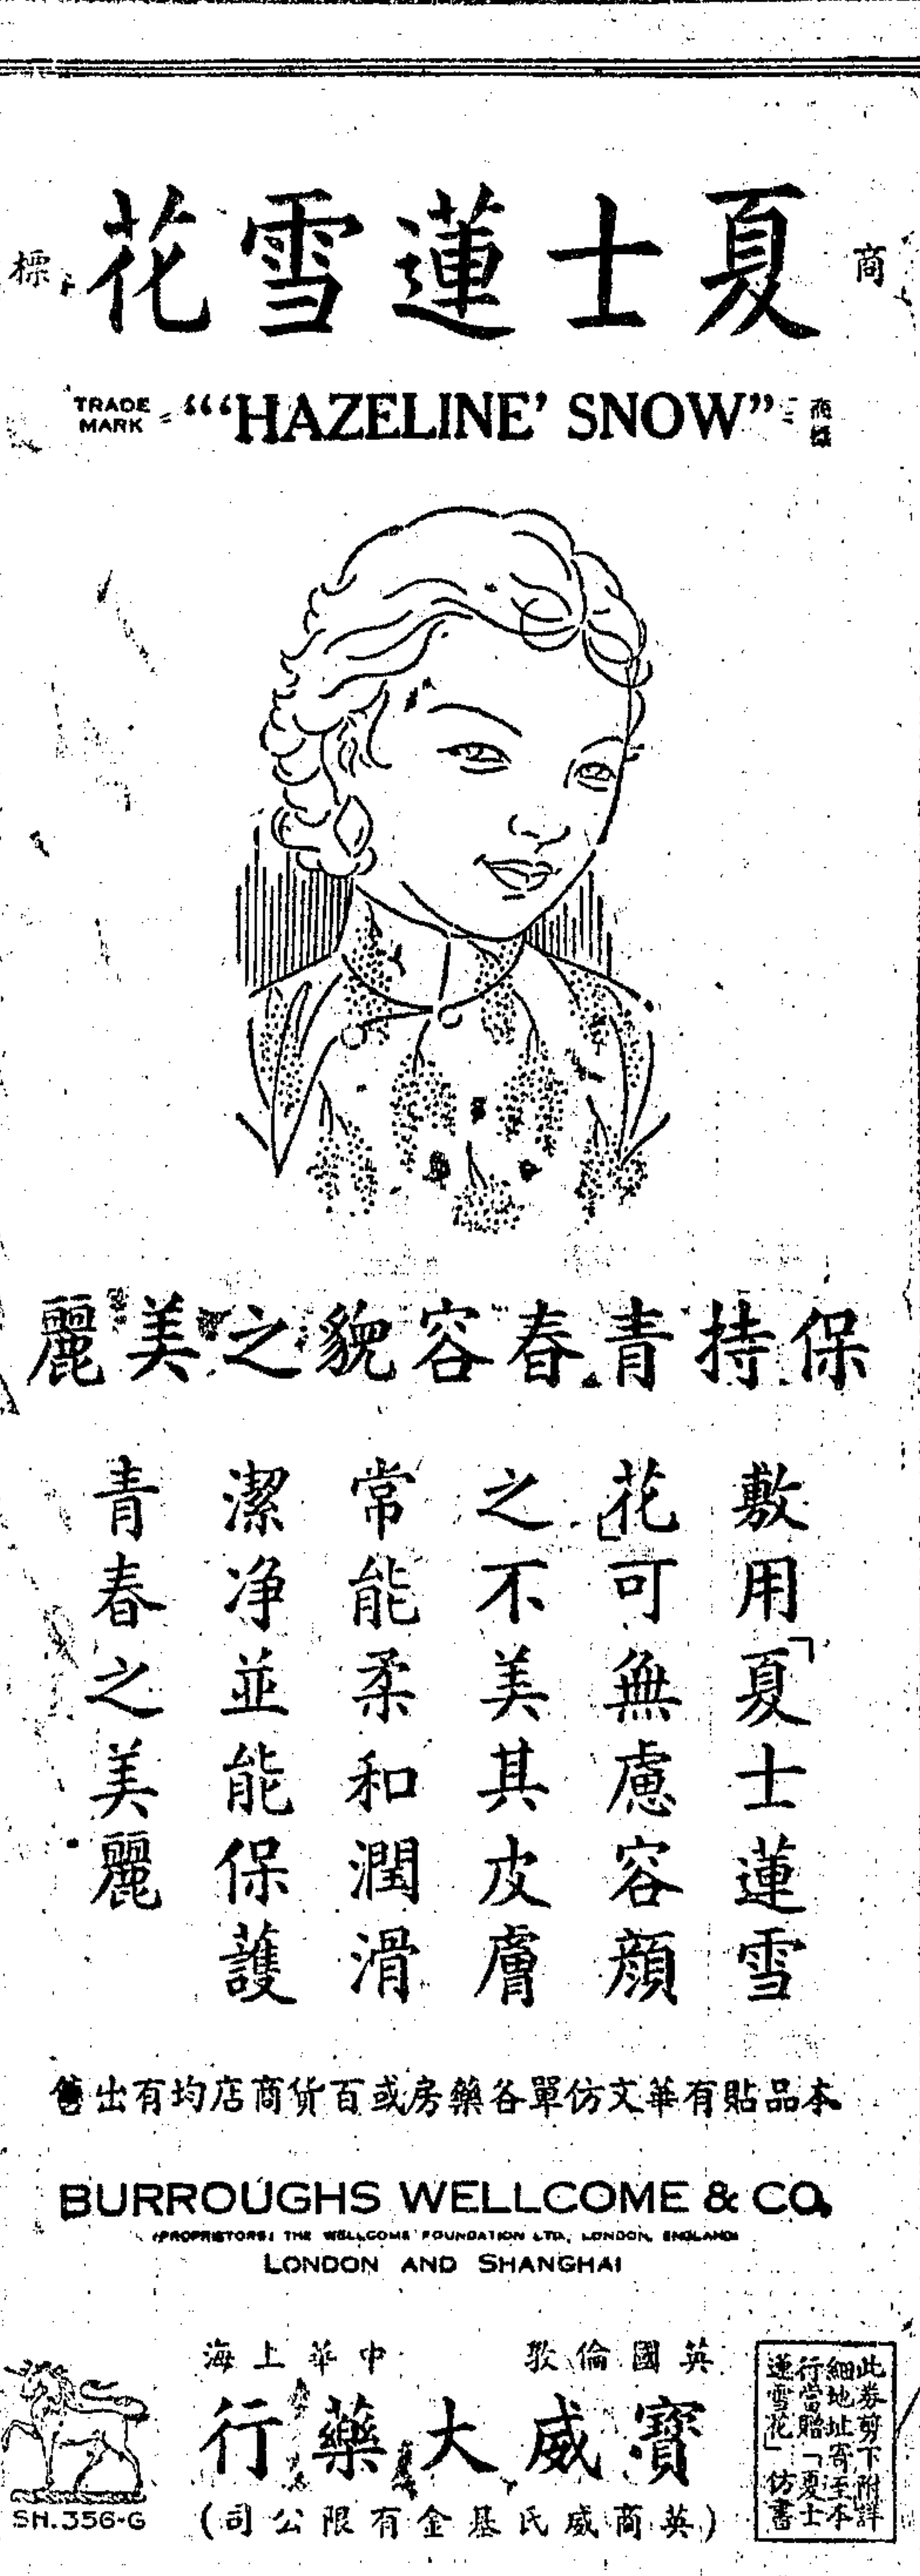 商標
夏士蓮雪花
TRADE MARK
"'HAZELINE' SNOW"
商標
保持青春容貌之美麗
敷用「夏士蓮雪
花」可無慮容顏
之不美其皮膚
常能柔和潤滑
潔净並能保護
青春之美麗
本品貼有華文仿單各藥房或百貨商店均有出售
BURROUGHS WELLCOME & CO.
(PROPRIETORS: THE WELLCOME FOUNDATION LTD., LONDON, ENGLAND)
LONDON AND SHANGHAI
英國倫敦 中華上海
寶威大藥行
(英商威氏基金有限公司)
SH.356-G
此券剪下附詳
細地址寄至本
行當贈「夏士
蓮雪花」仿書